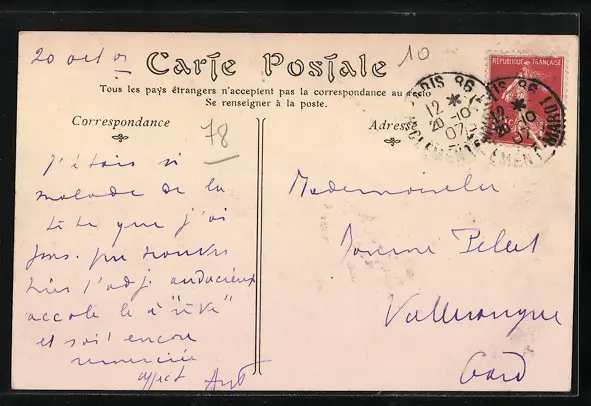 20 oct 07
10
Carte Postale
Tous les pays étrangers n'acceptent pas la correspondance au recto
Se renseigner à la poste.
Correspondance
78
Adresse
RÉPUBLIQUE FRANÇAISE
PARIS 96
12 *
20-10
07
J'étais si
malade de la
tête que j'ai
pu trouver
hier l'adj. audacieux
accolé à "rêve"
et sois encore
remerciée
affect
Mademoiselle
Jeanne Pelet
Valleraugue
Gard